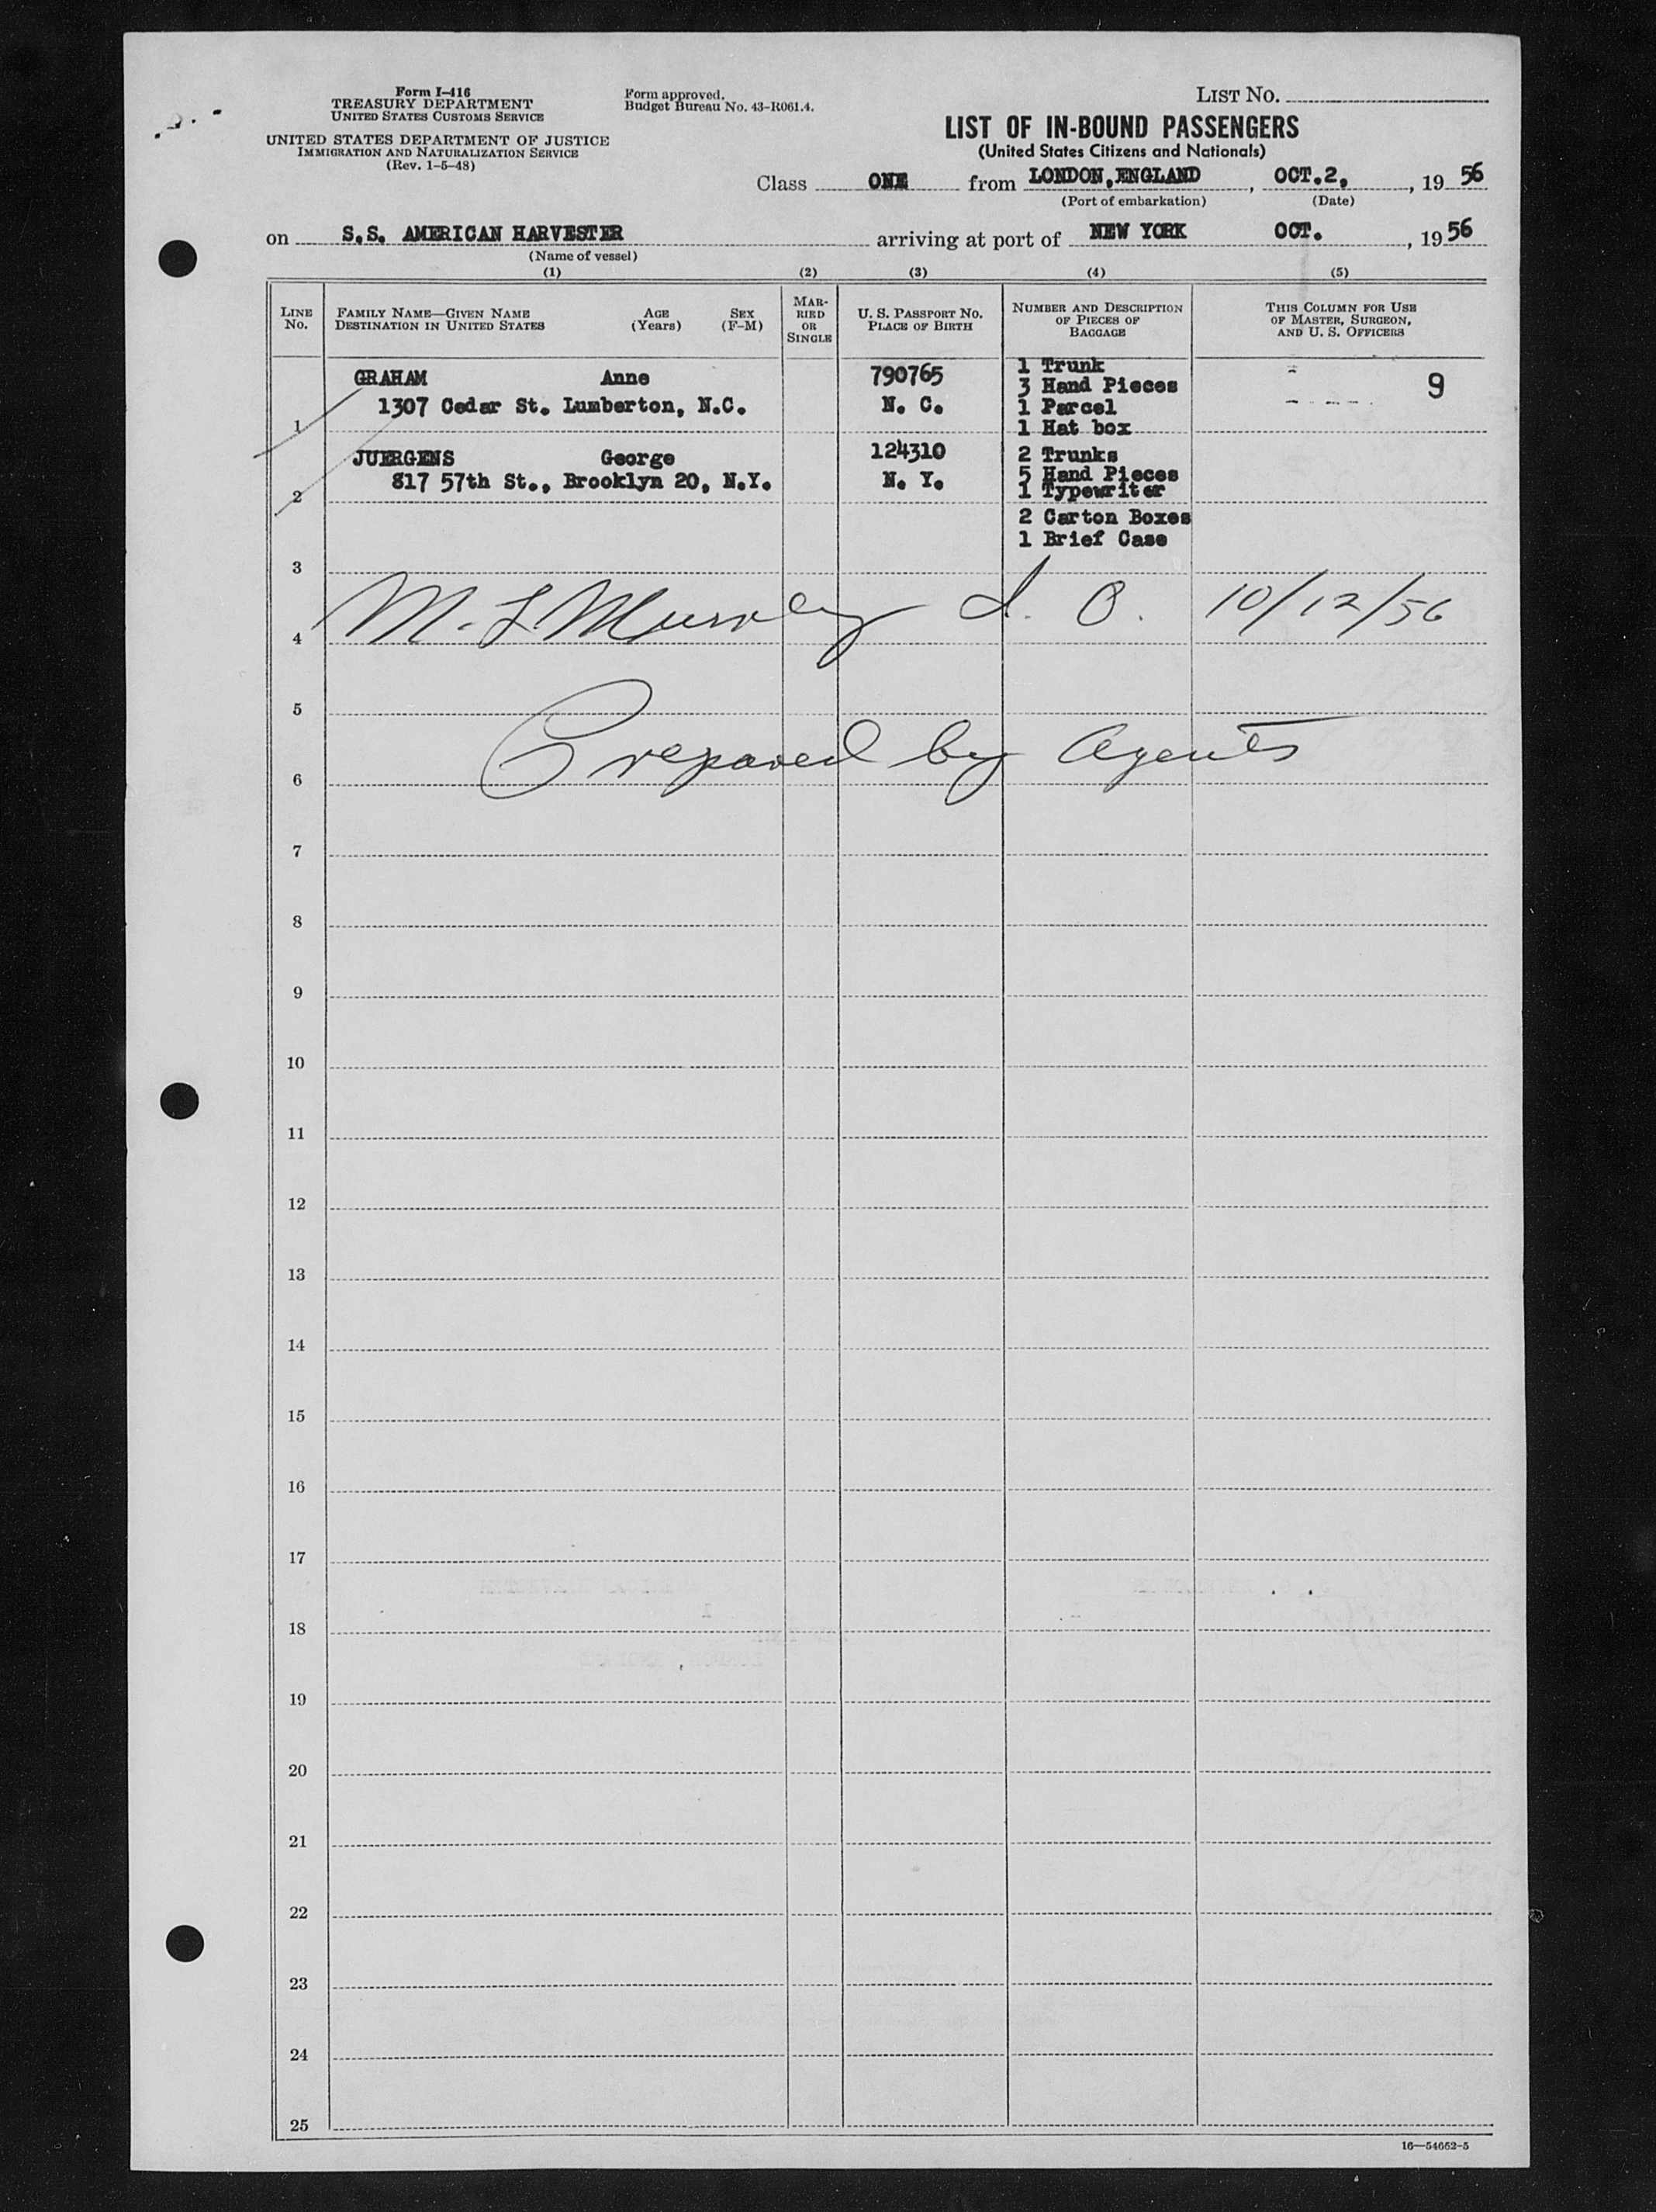 Form I-416
TREASURY DEPARTMENT
UNITED STATES CUSTOMS SERVICE
UNITED STATES DEPARTMENT OF JUSTICE
IMMIGRATION AND NATURALIZATION SERVICE
(Rev. 1-5-48)
Form approved.
Budget Bureau No. 43-R061.4.
LIST NO.
LIST OF IN-BOUND PASSENGERS
(United States Citizens and Nationals)
Class ONE from LONDON, ENGLAND, OCT.2, , 19 56
(Port of embarkation) (Date)
on S.S. AMERICAN HARVESTER arriving at port of NEW YORK OCT. , 19 56
(Name of vessel)
(1) (2) (3) (4) (5)
LINE NO.
FAMILY NAME—GIVEN NAME AGE SEX
DESTINATION IN UNITED STATES (Years) (F-M)
MAR-
RIED
OR
SINGLE
U. S. PASSPORT NO.
PLACE OF BIRTH
NUMBER AND DESCRIPTION
OF PIECES OF
BAGGAGE
THIS COLUMN FOR USE
OF MASTER, SURGEON,
AND U. S. OFFICERS
1
GRAHAM Anne
1307 Cedar St. Lumberton, N.C.
790765
N. C.
1 Trunk
3 Hand Pieces
1 Parcel
1 Hat box
9
2
JUERGENS George
817 57th St., Brooklyn 20, N.Y.
124310
N. Y.
2 Trunks
5 Hand Pieces
1 Typewriter
2 Carton Boxes
1 Brief Case
3
M. L. Murray I. O. 10/12/56
4
5
Prepared by Agents
6
7
8
9
10
11
12
13
14
15
16
17
18
19
20
21
22
23
24
25
16—54652-5